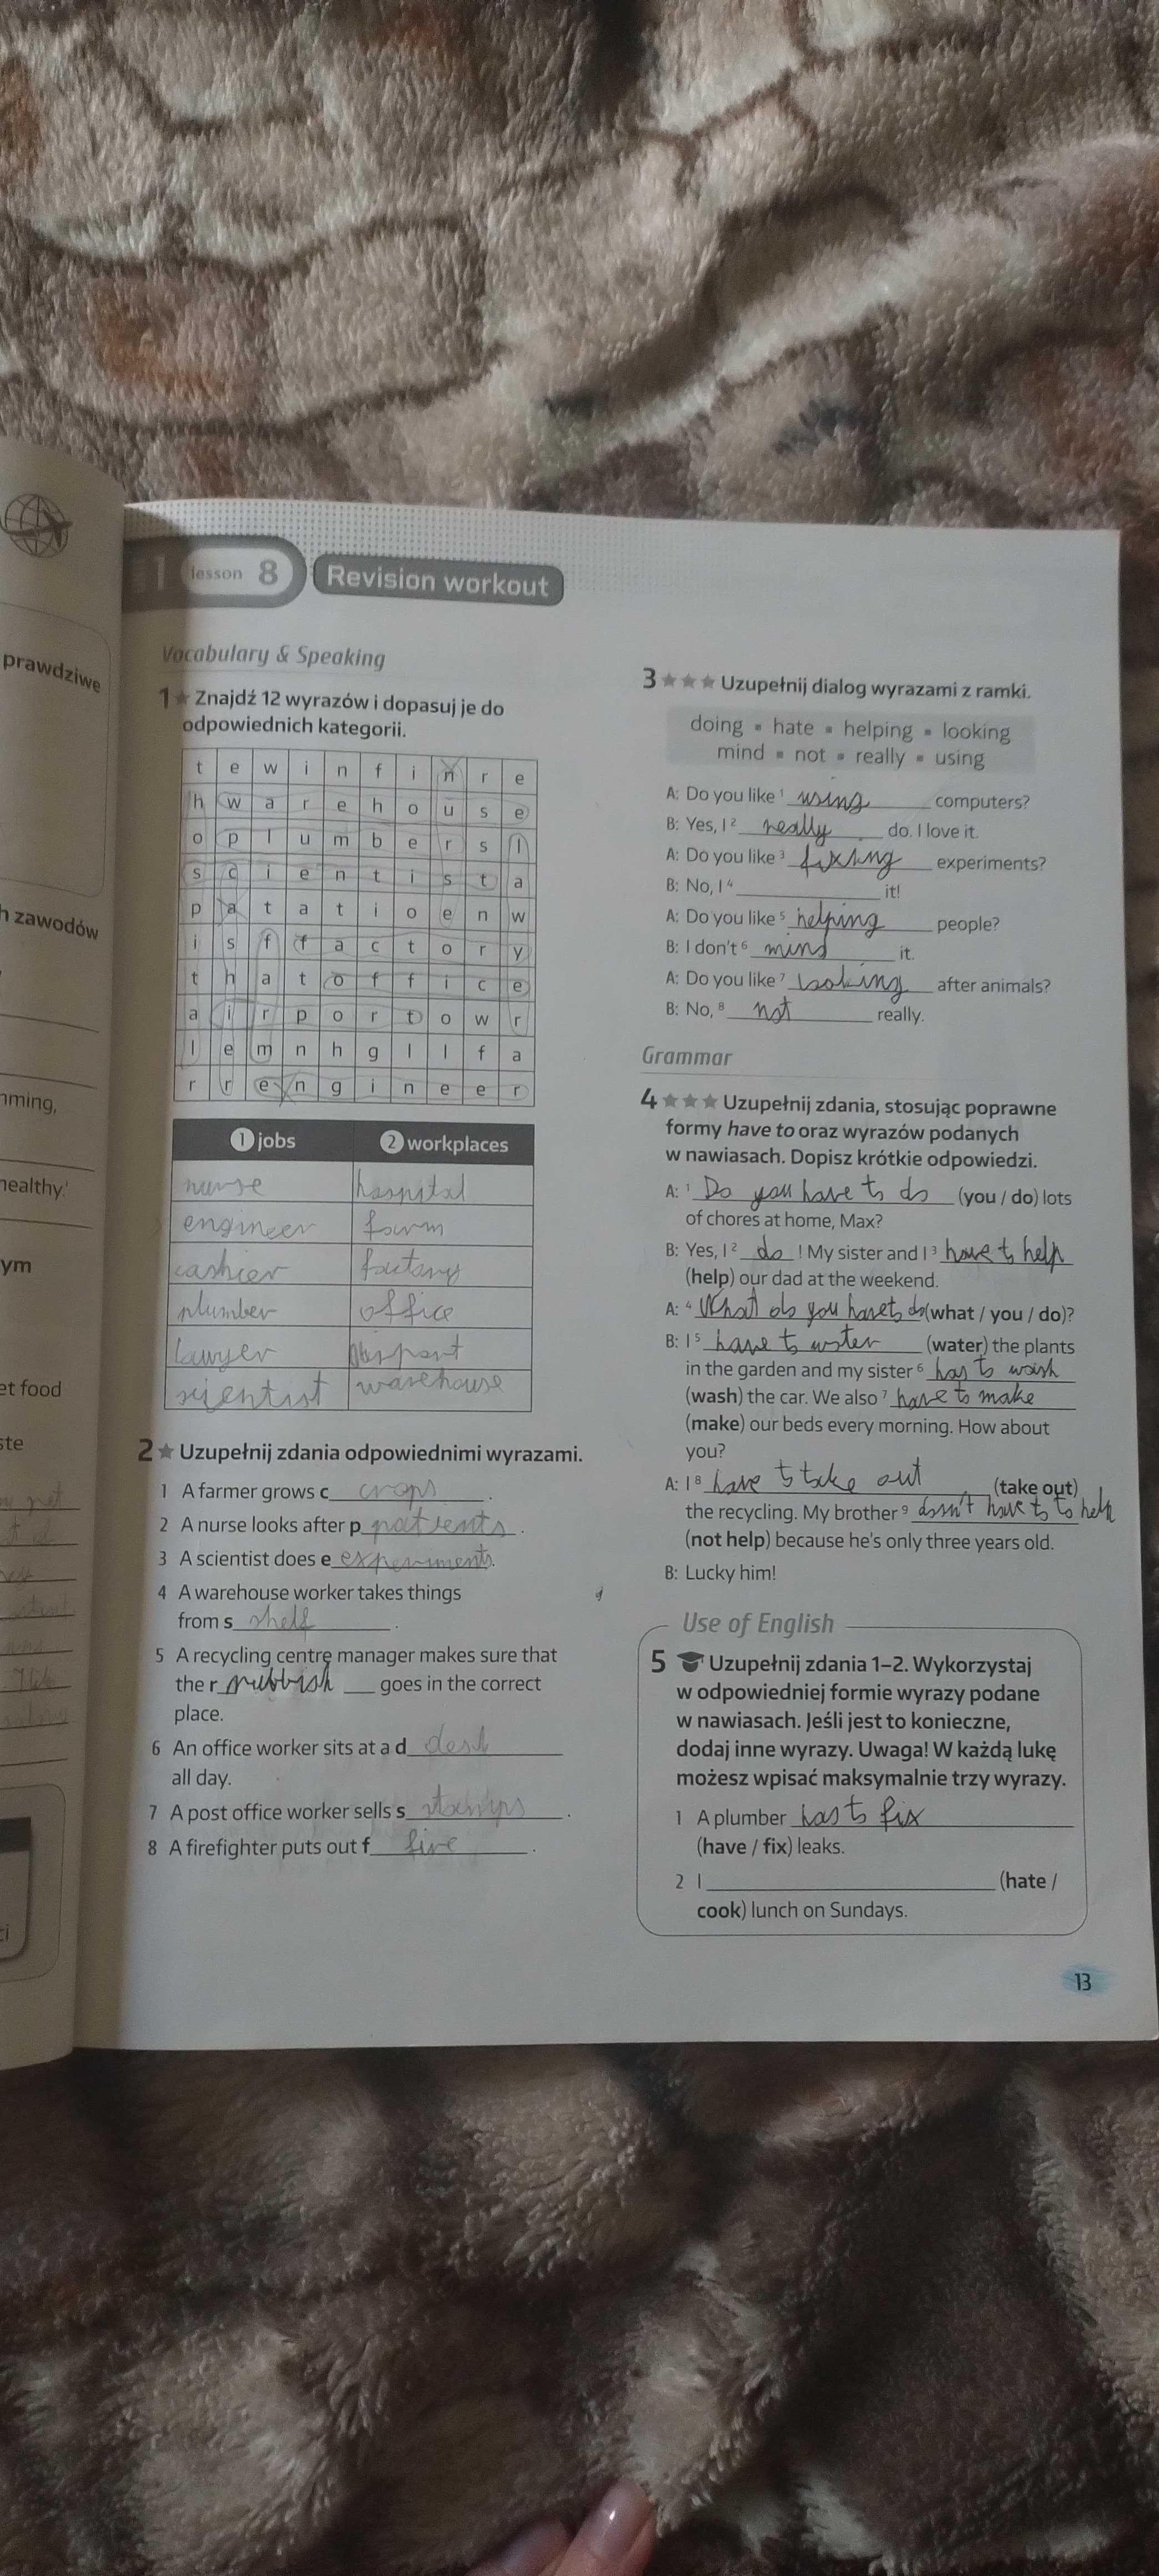 prawdziwe
h zawodów
nming,
healthy.'
ym
et food
ste
1 lesson 8 Revision workout
Vocabulary & Speaking
1 ★ Znajdź 12 wyrazów i dopasuj je do
odpowiednich kategorii.
t e w i n f i n r e
h w a r e h o u s e
o p l u m b e r s l
s c i e n t i s t a
p a t a t i o e n w
i s f f a c t o r y
t h a t o f f i c e
a i r p o r t o w r
l e m n h g l l f a
r r e n g i n e e r
1 jobs 2 workplaces
nurse hospital
engineer farm
cashier factory
plumber office
lawyer airport
scientist warehouse
2 ★ Uzupełnij zdania odpowiednimi wyrazami.
1 A farmer grows c crops .
2 A nurse looks after p patients .
3 A scientist does e experiments.
4 A warehouse worker takes things
from s shelf .
5 A recycling centre manager makes sure that
the r rubbish goes in the correct
place.
6 An office worker sits at a d desk
all day.
7 A post office worker sells s stamps .
8 A firefighter puts out f fire .
3 ★★★ Uzupełnij dialog wyrazami z ramki.
doing ▪ hate ▪ helping ▪ looking
mind ▪ not ▪ really ▪ using
A: Do you like 1 using computers?
B: Yes, I 2 really do. I love it.
A: Do you like 3 fixing experiments?
B: No, I 4 it!
A: Do you like 5 helping people?
B: I don't 6 mind it.
A: Do you like 7 looking after animals?
B: No, 8 not really.
Grammar
4 ★★★ Uzupełnij zdania, stosując poprawne
formy have to oraz wyrazów podanych
w nawiasach. Dopisz krótkie odpowiedzi.
A: 1 Do you have to do (you / do) lots
of chores at home, Max?
B: Yes, I 2 do ! My sister and I 3 have to help
(help) our dad at the weekend.
A: 4 What do you have to do (what / you / do)?
B: I 5 have to water (water) the plants
in the garden and my sister 6 has to wash
(wash) the car. We also 7 have to make
(make) our beds every morning. How about
you?
A: I 8 have to take out (take out)
the recycling. My brother 9 dosn't have to to help
(not help) because he's only three years old.
B: Lucky him!
Use of English
5 Uzupełnij zdania 1–2. Wykorzystaj
w odpowiedniej formie wyrazy podane
w nawiasach. Jeśli jest to konieczne,
dodaj inne wyrazy. Uwaga! W każdą lukę
możesz wpisać maksymalnie trzy wyrazy.
1 A plumber has to fix
(have / fix) leaks.
2 I (hate /
cook) lunch on Sundays.
13